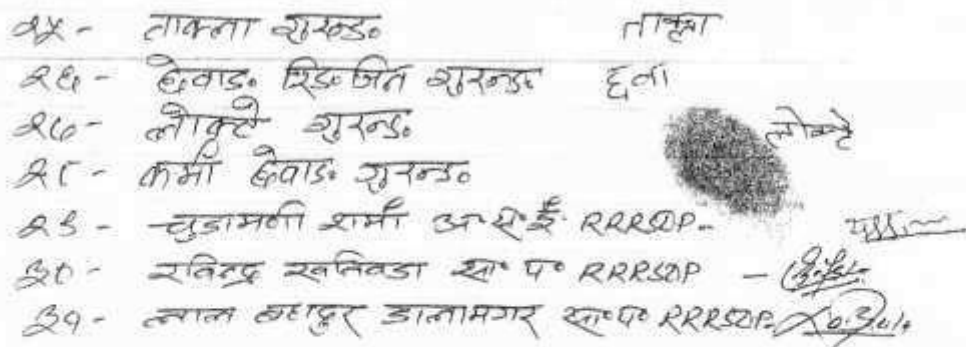 २५- ताक्ता गुरुङ॰ ताक्ता
२६- छेवाङ॰ रिङ॰जिन गुरुङ॰ छेवा
२७- लोक्टे गुरुङ॰ लोक्टे
२८- कर्मा छेवाङ॰ गुरुङ॰
२९- चुडामणी शर्मा अ॰स॰ई॰ RRRSDP-
३०- रविन्द्र खतिवडा सा॰ प॰ RRRSDP -
३१- लाल बहादुर डालामगर सा॰प॰ RRRSDP.